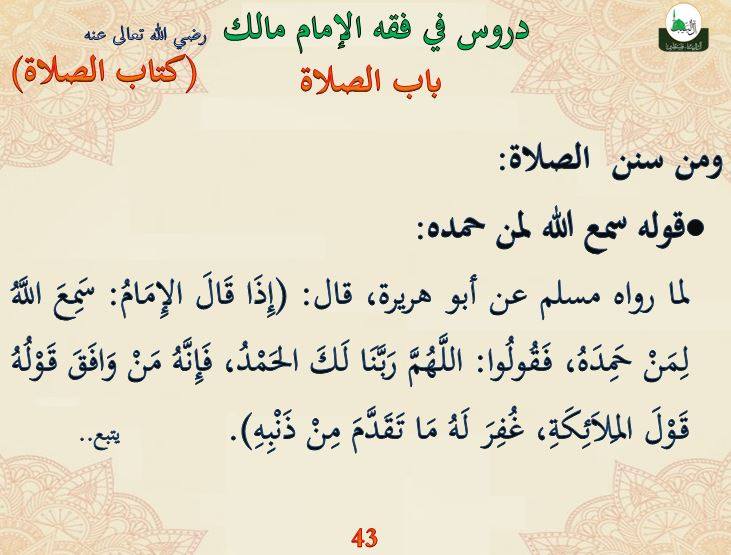 دروس في فقه الإمام مالك رضي الله تعالى عنه
باب الصلاة (كتاب الصلاة)
ومن سنن الصلاة:
●قوله سمع الله لمن حمده:
لما رواه مسلم عن أبو هريرة، قال: (إِذَا قَالَ الإِمَامُ: سَمِعَ اللَّهُ
لِمَنْ حَمِدَهُ، فَقُولُوا: اللَّهُمَّ رَبَّنَا لَكَ الحَمْدُ، فَإِنَّهُ مَنْ وَافَقَ قَوْلُهُ
قَوْلَ المِلاَئِكَةِ، غُفِرَ لَهُ مَا تَقَدَّمَ مِنْ ذَنْبِهِ). يتبع..
43